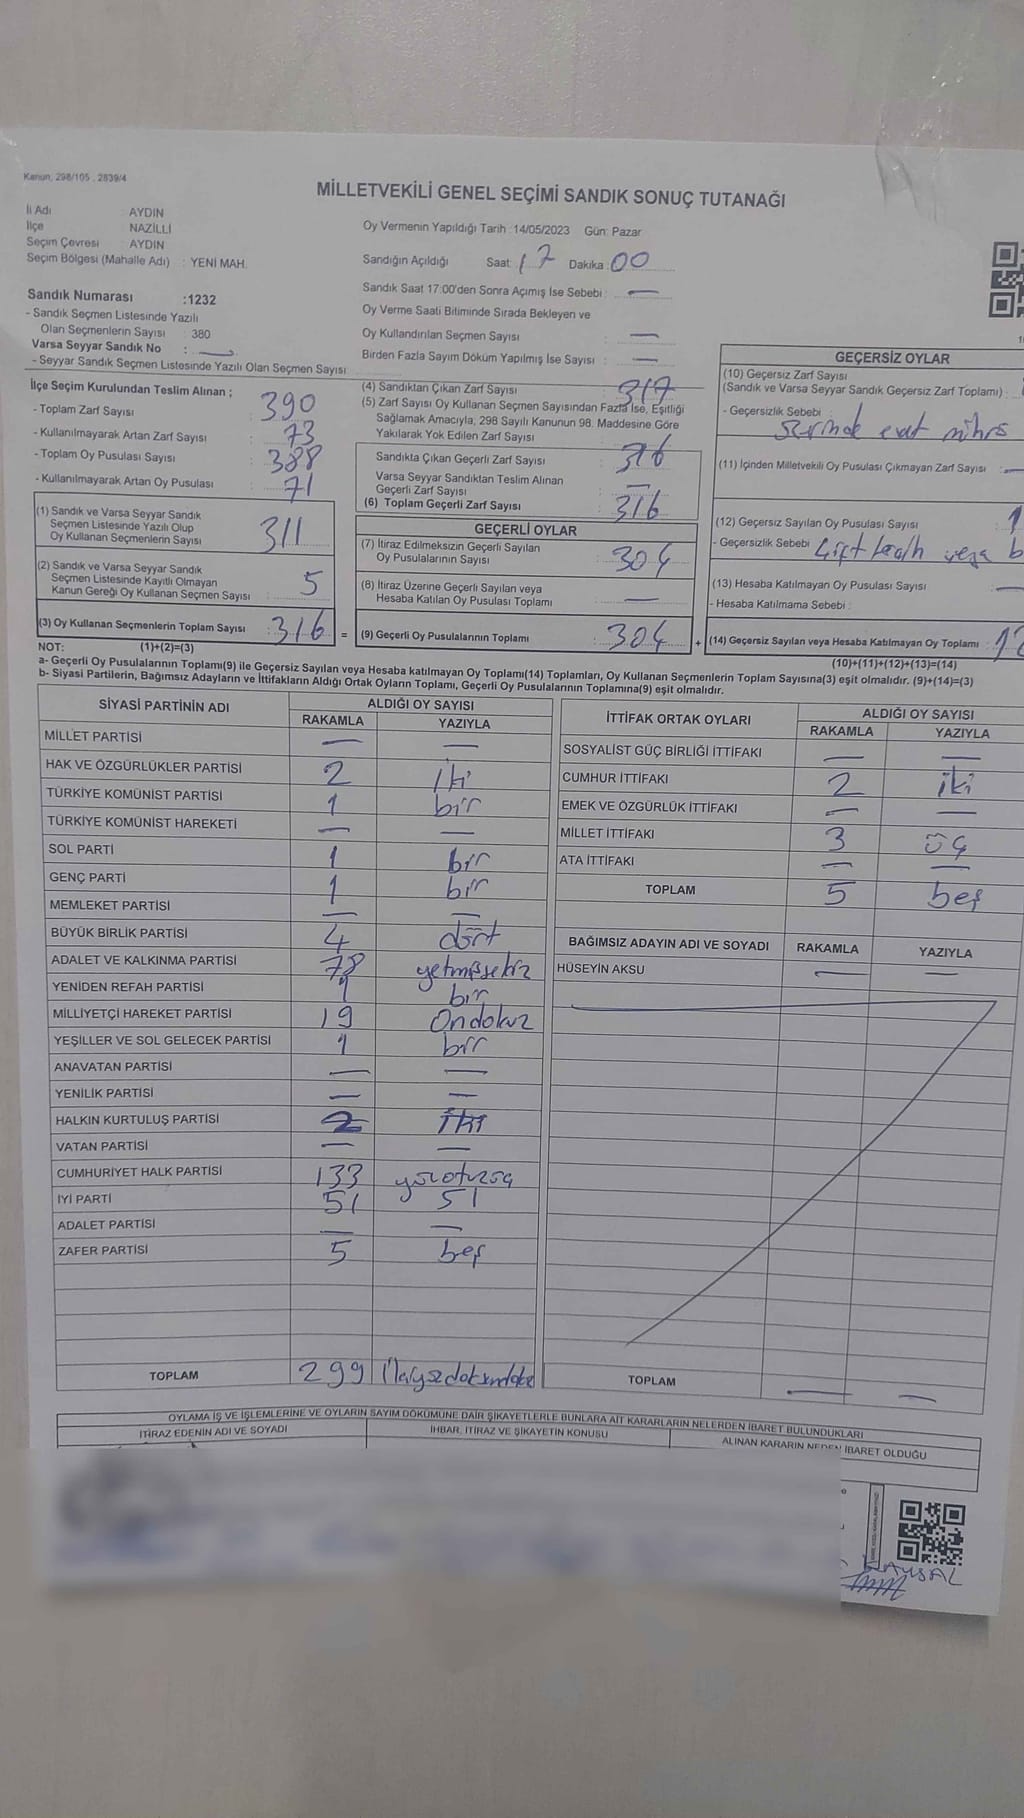 Kanun, 298/105 , 2839/4
MİLLETVEKİLİ GENEL SEÇİMİ SANDIK SONUÇ TUTANAĞI
İl Adı : AYDIN
İlçe NAZİLLİ
Seçim Çevresi : AYDIN
Seçim Bölgesi (Mahalle Adı) : YENİ MAH.
Oy Vermenin Yapıldığı Tarih :14/05/2023 Gün: Pazar
Sandığın Açıldığı Saat: 17 Dakika: 00
Sandık Saat 17:00'den Sonra Açımış İse Sebebi : —
Oy Verme Saati Bitiminde Sırada Bekleyen ve
Oy Kullandırılan Seçmen Sayısı : —
Birden Fazla Sayım Döküm Yapılmış İse Sayısı : —
Sandık Numarası :1232
- Sandık Seçmen Listesinde Yazılı
Olan Seçmenlerin Sayısı : 380
Varsa Seyyar Sandık No : —
- Seyyar Sandık Seçmen Listesinde Yazılı Olan Seçmen Sayısı
İlçe Seçim Kurulundan Teslim Alınan ;
- Toplam Zarf Sayısı : 390
- Kullanılmayarak Artan Zarf Sayısı : 73
- Toplam Oy Pusulası Sayısı : 388
- Kullanılmayarak Artan Oy Pusulası : 71
(1) Sandık ve Varsa Seyyar Sandık
Seçmen Listesinde Yazılı Olup
Oy Kullanan Seçmenlerin Sayısı : 311
(2) Sandık ve Varsa Seyyar Sandık
Seçmen Listesinde Kayıtlı Olmayan
Kanun Gereği Oy Kullanan Seçmen Sayısı : 5
(3) Oy Kullanan Seçmenlerin Toplam Sayısı : 316 =
(4) Sandıktan Çıkan Zarf Sayısı : 317
(5) Zarf Sayısı Oy Kullanan Seçmen Sayısından Fazla İse, Eşitliği
Sağlamak Amacıyla, 298 Sayılı Kanunun 98. Maddesine Göre
Yakılarak Yok Edilen Zarf Sayısı :
Sandıkta Çıkan Geçerli Zarf Sayısı : 316
Varsa Seyyar Sandıktan Teslim Alınan
Geçerli Zarf Sayısı : —
(6) Toplam Geçerli Zarf Sayısı : 316
GEÇERLİ OYLAR
(7) İtiraz Edilmeksizin Geçerli Sayılan
Oy Pusulalarının Sayısı : 304
(8) İtiraz Üzerine Geçerli Sayılan veya
Hesaba Katılan Oy Pusulası Toplamı : —
(9) Geçerli Oy Pusulalarının Toplamı : 304 +
GEÇERSİZ OYLAR
(10) Geçersiz Zarf Sayısı
(Sandık ve Varsa Seyyar Sandık Geçersiz Zarf Toplamı) :
- Geçersizlik Sebebi :
(11) İçinden Milletvekili Oy Pusulası Çıkmayan Zarf Sayısı : —
(12) Geçersiz Sayılan Oy Pusulası Sayısı : 1
- Geçersizlik Sebebi : Çift tercih veya b
(13) Hesaba Katılmayan Oy Pusulası Sayısı : —
- Hesaba Katılmama Sebebi :
(14) Geçersiz Sayılan veya Hesaba Katılmayan Oy Toplamı : 12
NOT: (1)+(2)=(3) (10)+(11)+(12)+(13)=(14)
a- Geçerli Oy Pusulalarının Toplamı(9) ile Geçersiz Sayılan veya Hesaba katılmayan Oy Toplamı(14) Toplamları, Oy Kullanan Seçmenlerin Toplam Sayısına(3) eşit olmalıdır. (9)+(14)=(3)
b- Siyasi Partilerin, Bağımsız Adayların ve İttifakların Aldığı Ortak Oyların Toplamı, Geçerli Oy Pusulalarının Toplamına(9) eşit olmalıdır.
SİYASİ PARTİNİN ADI ALDIĞI OY SAYISI
RAKAMLA YAZIYLA
MİLLET PARTİSİ — —
HAK VE ÖZGÜRLÜKLER PARTİSİ 2 iki
TÜRKİYE KOMÜNİST PARTİSİ 1 bir
TÜRKİYE KOMÜNİST HAREKETİ — —
SOL PARTİ 1 bir
GENÇ PARTİ 1 bir
MEMLEKET PARTİSİ — —
BÜYÜK BİRLİK PARTİSİ 4 dört
ADALET VE KALKINMA PARTİSİ 78 yetmişsekiz
YENİDEN REFAH PARTİSİ 1 bir
MİLLİYETÇİ HAREKET PARTİSİ 19 Ondokuz
YEŞİLLER VE SOL GELECEK PARTİSİ 1 bir
ANAVATAN PARTİSİ — —
YENİLİK PARTİSİ — —
HALKIN KURTULUŞ PARTİSİ 2 iki
VATAN PARTİSİ — —
CUMHURİYET HALK PARTİSİ 133 yüzotuzüç
İYİ PARTİ 51 51
ADALET PARTİSİ — —
ZAFER PARTİSİ 5 beş
TOPLAM 299
İTTİFAK ORTAK OYLARI ALDIĞI OY SAYISI
RAKAMLA YAZIYLA
SOSYALİST GÜÇ BİRLİĞİ İTTİFAKI — —
CUMHUR İTTİFAKI 2 iki
EMEK VE ÖZGÜRLÜK İTTİFAKI — —
MİLLET İTTİFAKI 3 üç
ATA İTTİFAKI — —
TOPLAM 5 beş
BAĞIMSIZ ADAYIN ADI VE SOYADI RAKAMLA YAZIYLA
HÜSEYİN AKSU — —
TOPLAM — —
OYLAMA İŞ VE İŞLEMLERİNE VE OYLARIN SAYIM DÖKÜMÜNE DAİR ŞİKAYETLERLE BUNLARA AİT KARARLARIN NELERDEN İBARET BULUNDUKLARI
İTİRAZ EDENİN ADI VE SOYADI İHBAR, İTİRAZ VE ŞİKAYETİN KONUSU ALINAN KARARIN NEDEN İBARET OLDUĞU